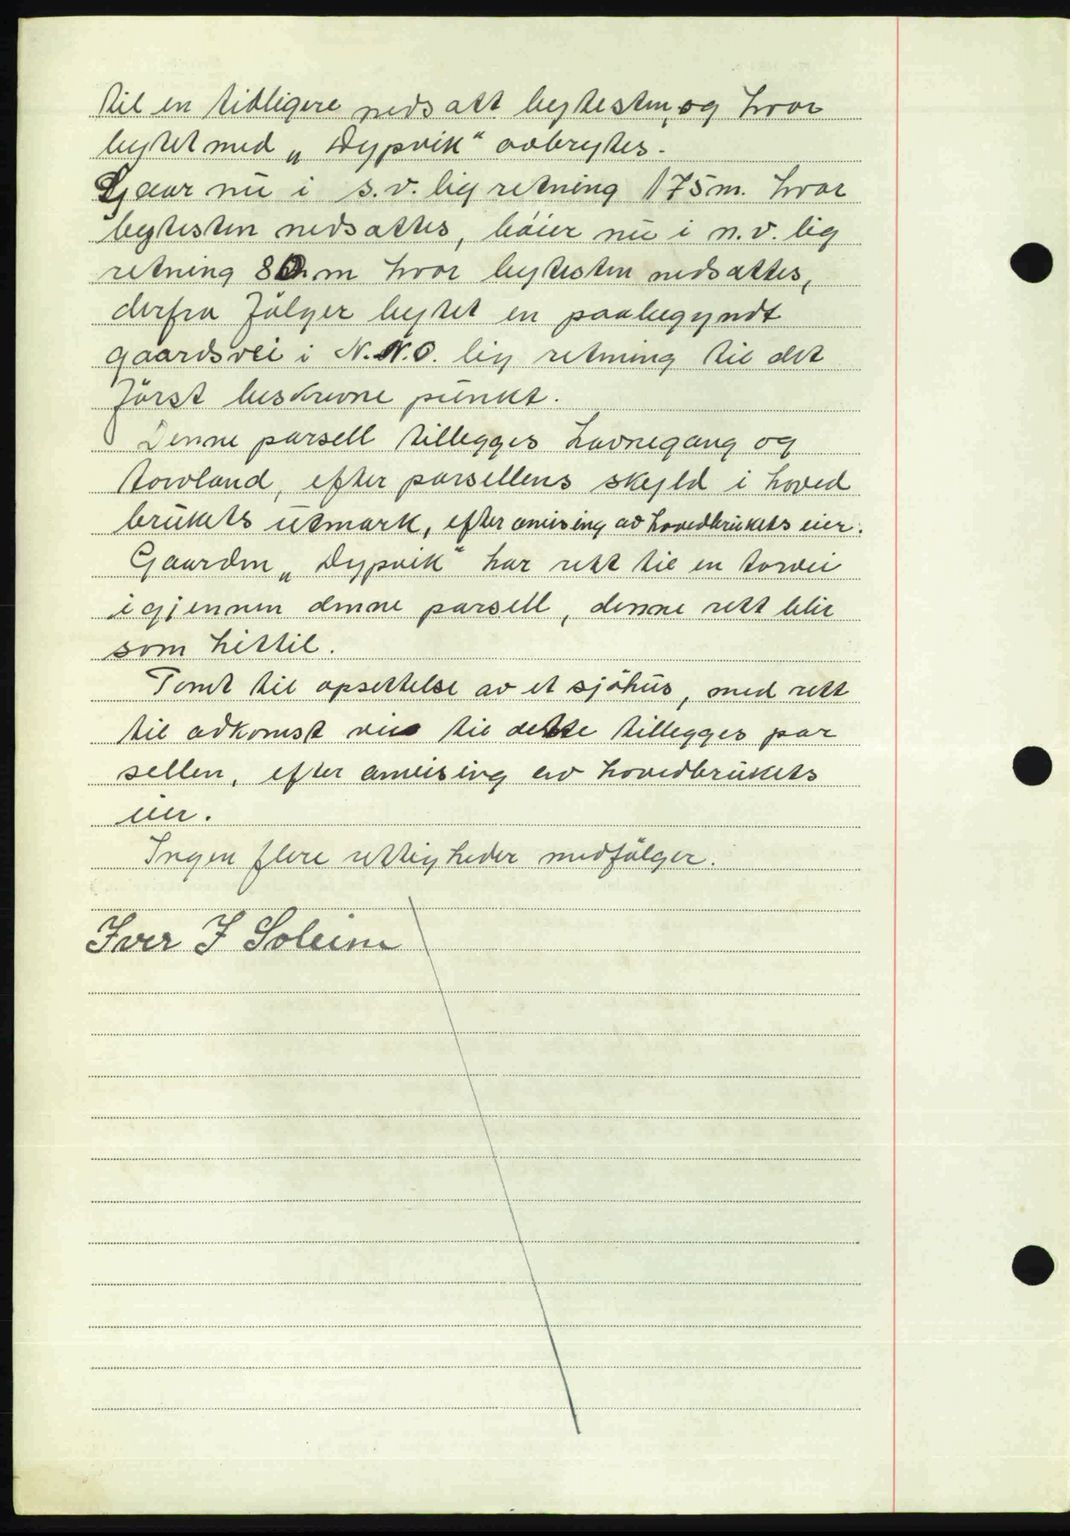 til en tidligere nedsatt bytesten, og hvor
bytet med „Dypvik“ avbrytes.
Gaar nu i s.v. lig retning 175 m. hvor
bytesten nedsattes, böier nu i n.v. lig
retning 80 m hvor bytesten nedsattes,
derfra fölger bytet en paabegyndt
gaardsvei i N.N.O. lig retning til det
först beskrevne punkt.
Denne parsell tillegges havnegang og
torvland, efter parsellens skyld i hoved
brukets utmark, efter anvising av hovedbrukets eier.
Gaarden „Dypvik“ har rett til en torvei
igjennem denne parsell, denne rett blir
som hittil.
Tomt til opsettelse av et sjöhus, med rett
til adkomst vei til dette tillegges par
sellen, efter anvising av hovedbrukets
eier.
Ingen flere rettigheder medfölger.
Iver J Soleim